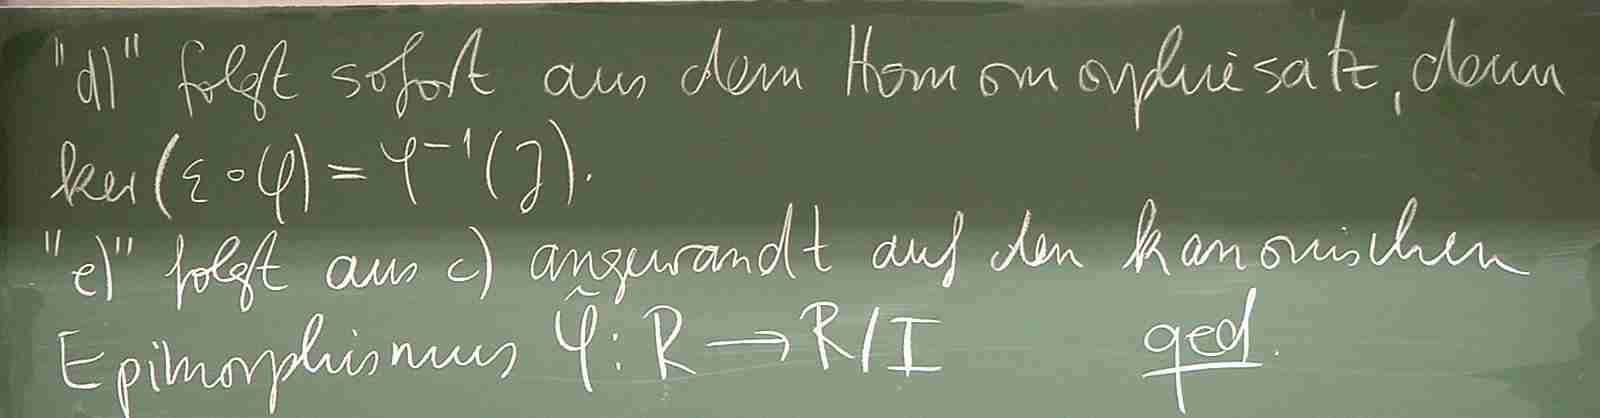 "d)" folgt sofort aus dem Homomorphiesatz, denn
ker(ε∘φ) = φ⁻¹(J).
"e)" folgt aus c) angewandt auf den kanonischen
Epimorphismus φ̃: R → R/I qed.